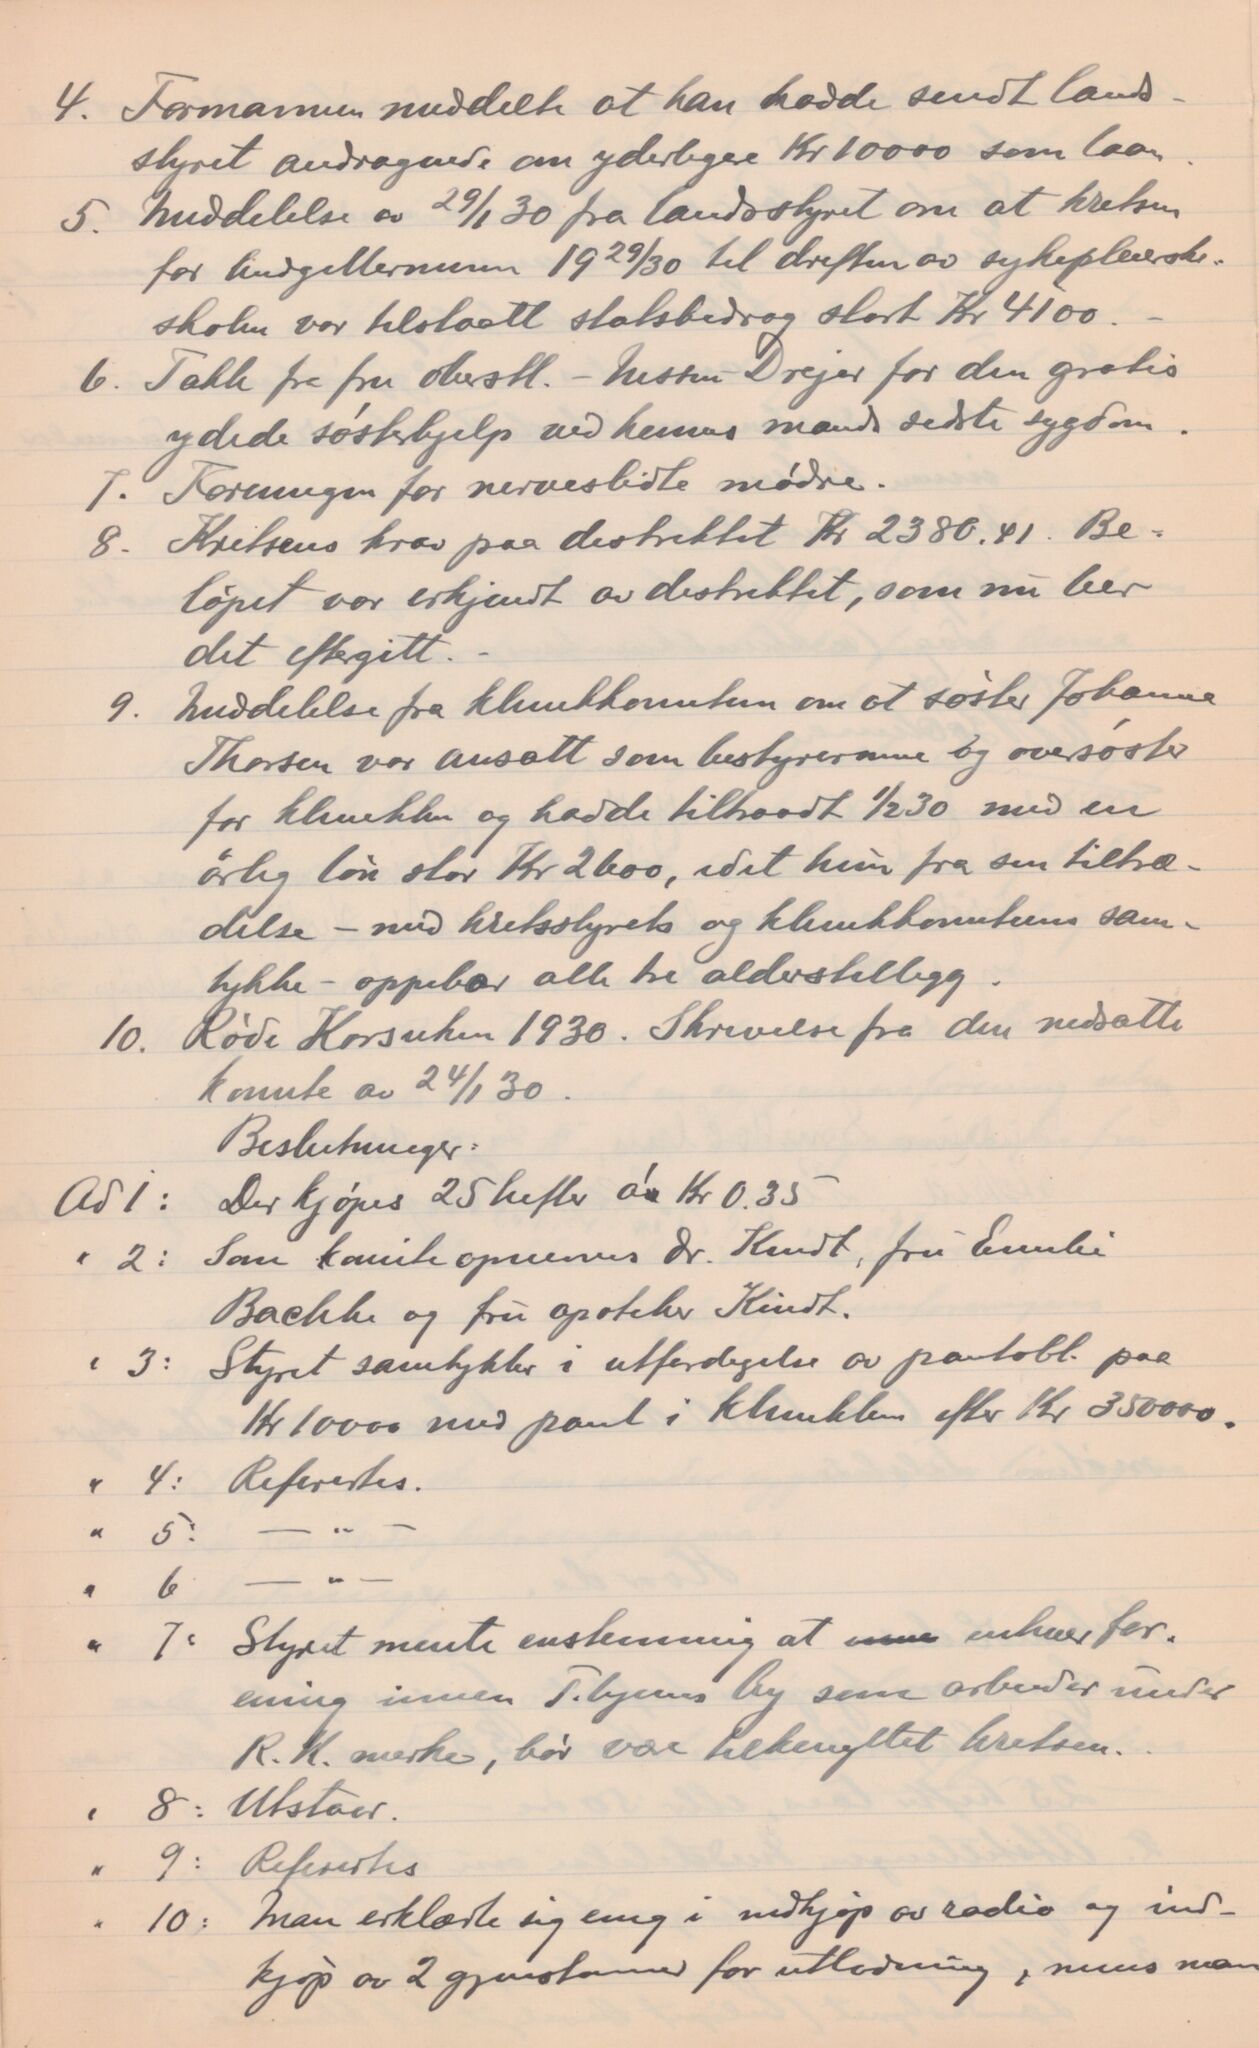 4. Formannen meddelte at han hadde sendt lands-
styret andragende om yderligere Kr 10000 som laan.
5. Meddelelse av 29/1 30 fra landsstyret om at kretsen
for budgetterminen 1929/30 til driften av sykepleierske-
skolen var tilstaatt statsbidrag stort Kr 4100. -
6. Takk fra fru oberstl. - Nissen-Drejer for den gratis
ydede søsterhjelp ved hennes mands sidste sygdom.
7. Foreningen for nerveslidte mødre.
8. Kretsens krav paa distriktet Kr 2380.41. Be-
løpet var erkjendt av distriktet, som nu ber
det eftergitt. -
9. Meddelelse fra klinikkomiteen om at søster Johanne
Thorsen var ansatt som bestyrerinne og oversøster
for klinikken og hadde tiltraadt 1/2 30 med en
årlig løn stor Kr 2600, idet hun fra sin tiltræ-
delse - med kretsstyrets og klinikkomiteens sam-
tykke - oppebar alle tre alderstillegg.
10. Røde Korsuken 1930. Skrivelse fra den nedsatte
komite av 24/1 30.
Beslutninger:
Ad 1: Der kjøpes 25 hefter á Kr 0.35
" 2: Som komite opnevnes dr. Kindt, fru Emilie
Bachke og fru apoteker Kindt.
" 3: Styret samtykker i utferdigelse av pantobl. paa
Kr 10000 med pant i klinikken efter Kr 350000.
" 4: Refereertes.
" 5: — " —
" 6 — " —
" 7: Styret mente enstemmig at enhver for-
ening innen T.hjems by som arbeider under
R. K. merke, bør være tilknyttet kretsen.
" 8: Utstaar.
" 9: Refereertes
" 10: Man erklærte sig enig i indkjøp av radio og ind-
kjøp av 2 gjenstanner for utlodning, mens man